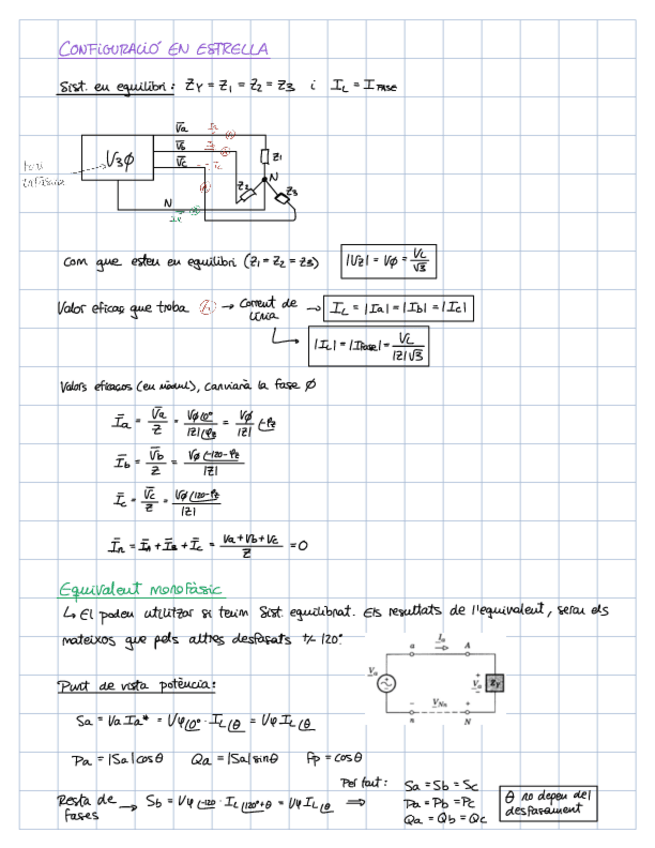 CONFIGURACIÓ EN ESTRELLA
Sist. en equilibri: Zy = Z1 = Z2 = Z3 i IL = IFASE
V̄a Ia
V̄b
V3φ V̄c Ic Z1
N
Z2 Z3
N
Com que esteu en equilibri (Z1 = Z2 = Z3) |VZ| = Vφ = VL/√3
Valor eficaç que troba → Corrent de línia → IL = |Ia| = |Ib| = |Ic|
|IL| = |IFase| = VL/|Z|√3
Valors eficaços (en mòdul), canviarà la fase φ
Īa = V̄a/Z = Vφ∠0°/|Z|∠φz = Vφ/|Z| ∠-φz
Īb = V̄b/Z = Vφ∠-120-φz/|Z|
Īc = V̄c/Z = Vφ∠120-φz/|Z|
Īn = Īa + Īb + Īc = Va+Vb+Vc/Z = 0
Equivalent monofàsic
↳ El podem utilitzar si tenim Sist. equilibrat. Els resultats de l'equivalent, seran els
mateixos que pels altres desfasats +/- 120°
a Ia A
Va + Va ZY
VNn
n N
Punt de vista potència:
Sa = Va Ia* = Vφ∠0° · IL∠θ = Vφ IL∠θ
Pa = |Sa| cosθ Qa = |Sa| sinθ Fp = cosθ
Resta de fases → Sb = Vφ∠-120 · IL∠120°+θ = Vφ IL∠θ ⇒
Per tant: Sa = Sb = Sc
Pa = Pb = Pc
Qa = Qb = Qc
θ no depen del
desfasament